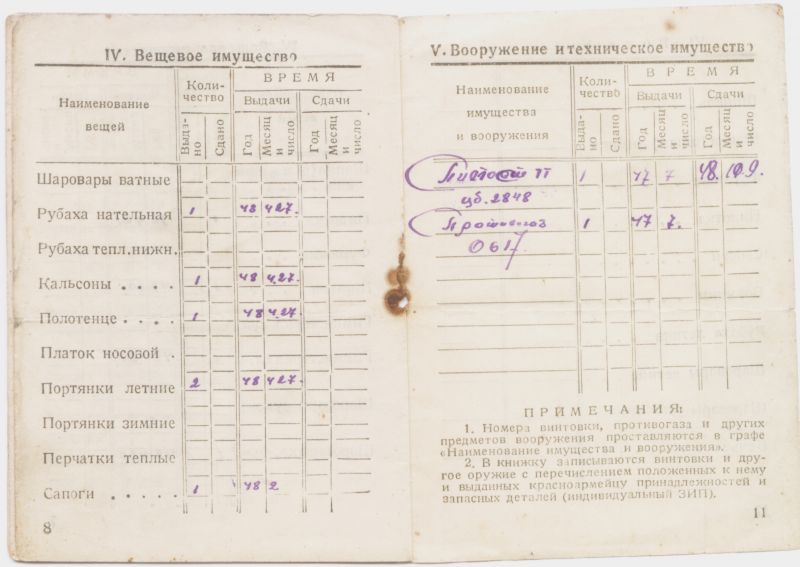 IV. Вещевое имущество
Наименование вещей
Коли-чество
ВРЕМЯ
Выдачи
Сдачи
Выда-но
Сдано
Год
Месяц и число
Год
Месяц и число
Шаровары ватные
Рубаха нательная 1 48 4 27.
Рубаха тепл. нижн.
Кальсоны . . . . 1 48 4.27.
Полотенце . . . . 1 48 4.27
Платок носовой .
Портянки летние 2 48 4 27.
Портянки зимние
Перчатки теплые
Сапоги . . . . . 1 48 2
8
V. Вооружение и техническое имущество
Наименование
имущества
и вооружения
Коли-чество
ВРЕМЯ
Выдачи
Сдачи
Выда-но
Сдано
Год
Месяц и число
Год
Месяц и число
1 47 7 48. 10.9.
2848
1 47 7.
0617
ПРИМЕЧАНИЯ:
1. Номера винтовки, противогаза и других
предметов вооружения проставляются в графе
«Наименование имущества и вооружения».
2. В книжку записываются винтовки и дру-
гое оружие с перечислением положенных к нему
и выданых красноармейцу принадлежностей и
запасных деталей (индивидуальный ЗИП).
11